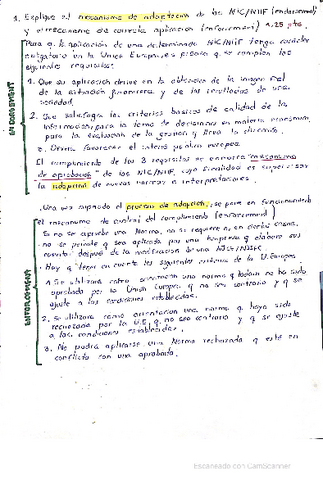 1. Explique el mecanismo de adaptación de las NIC/NIIF (endorsement)
y el mecanismo de correcta aplicación (enforcement) 1,25 pts.
Para q la aplicación de una determinada NIC/NIIF tenga carácter
obligatorio en la Unión Europea, es preciso q se cumplan los
siguientes requisitos:
ENDORSEMENT
1. Que su aplicación derive en la obtención de la imagen fiel
de la situación financiera y de los resultados de una
sociedad.
2. Que satisfaga los criterios básicos de calidad de la
información para la toma de decisiones en materia económica,
para la evaluación de la gestión
3. Deberá favorecer el interés público europeo.
El cumplimiento de los 3 requisitos se encarga "mecanismo
de aprobación" de las NIC/NIIF, cuya finalidad es supervisar
la adopción de nuevas normas e interpretaciones.
Una vez superado el proceso de adopción, se pone en funcionamiento
el mecanismo de control del cumplimiento (enforcement)
ENFORCEMENT
Si no se aprueba una Norma, no se requiere, en ciertos casos,
no se permite q sea aplicada por una empresa q elabore sus
cuentas después de la modificación de una NIC/NIIF.
Hay q tener en cuenta los siguientes criterios de la U. Europea
1. Se utilizará como orientación una norma q todavía no ha sido
aprobada por la Unión Europea q no sea contrario y q se
ajuste a las condiciones establecidas.
2. Se utilizará como orientación una norma q haya sido
rechazada por la U.E q no sea contrario y q se ajuste
a las condiciones establecidas.
3. No podrá aplicarse una Norma rechazada q esté en
conflicto con una aprobada.
Escaneado con CamScanner